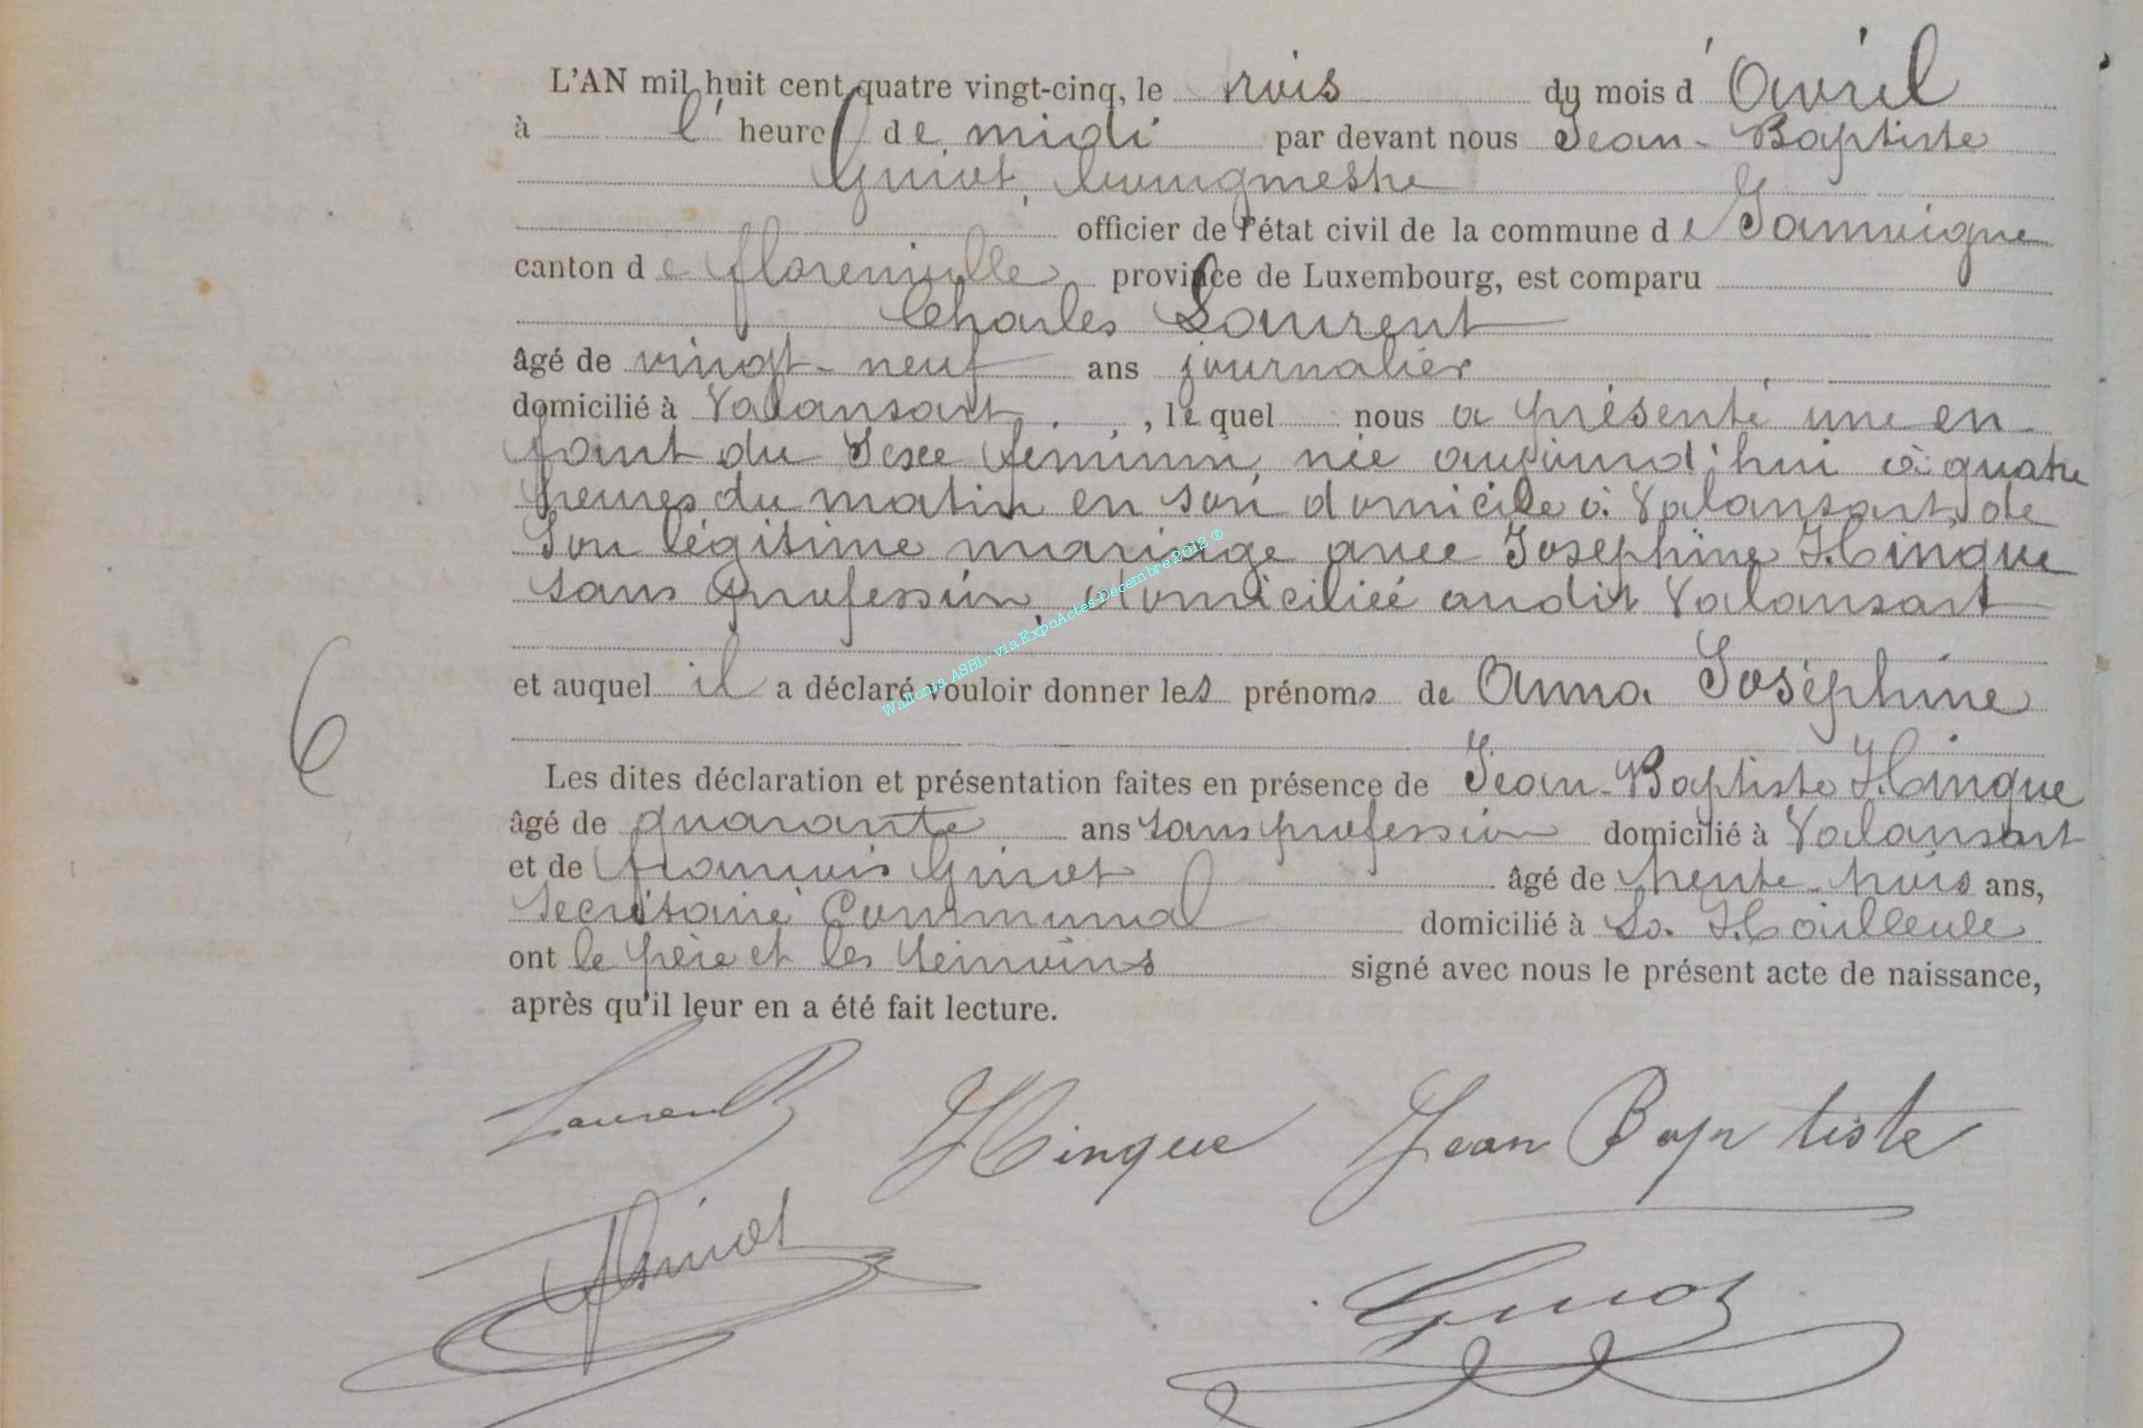 L'AN mil huit cent quatre vingt-cinq, le trois du mois d'Avril
à l'heure de midi par devant nous Jean-Baptiste
Guiot, bourgmestre
officier de l'état civil de la commune de Jamoigne
canton de florenville province de Luxembourg, est comparu
Charles Laurent
âgé de vingt-neuf ans journalier
domicilié à Valansart, lequel nous a présenté une en-
fant du Sexe féminin née aujourd'hui à quatre
heures du matin en son domicile à Valansart, de
Son légitime mariage avec Joséphine Hinque
sans profession, domiciliée audit Valansart
et auquel il a déclaré vouloir donner les prénoms de Anna Joséphine
6
Les dites déclaration et présentation faites en présence de Jean-Baptiste Hinque
âgé de quarante ans sans profession domicilié à Valansart
et de françois Guiot âgé de trente-trois ans,
Secrétaire Communal domicilié à La Hailleule
ont le père et les témoins signé avec nous le présent acte de naissance,
après qu'il leur en a été fait lecture.
Laurent Hinque Jean Baptiste
Guiot Guiot
Wallonia ASBL - via ExpoActes Décembre 2012 ©